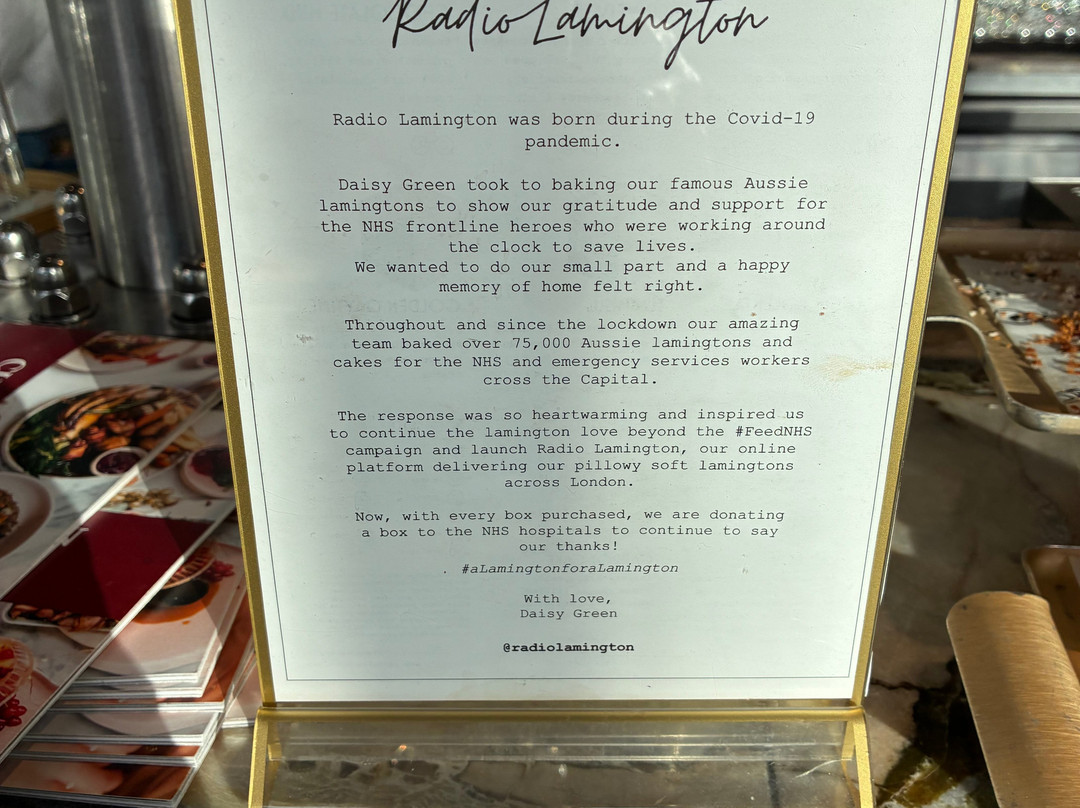 Radio Lamington
Radio Lamington was born during the Covid-19
pandemic.
Daisy Green took to baking our famous Aussie
lamingtons to show our gratitude and support for
the NHS frontline heroes who were working around
the clock to save lives.
We wanted to do our small part and a happy
memory of home felt right.
Throughout and since the lockdown our amazing
team baked over 75,000 Aussie lamingtons and
cakes for the NHS and emergency services workers
cross the Capital.
The response was so heartwarming and inspired us
to continue the lamington love beyond the #FeedNHS
campaign and launch Radio Lamington, our online
platform delivering our pillowy soft lamingtons
across London.
Now, with every box purchased, we are donating
a box to the NHS hospitals to continue to say
our thanks!
#aLamingtonforaLamington
With love,
Daisy Green
@radiolamington